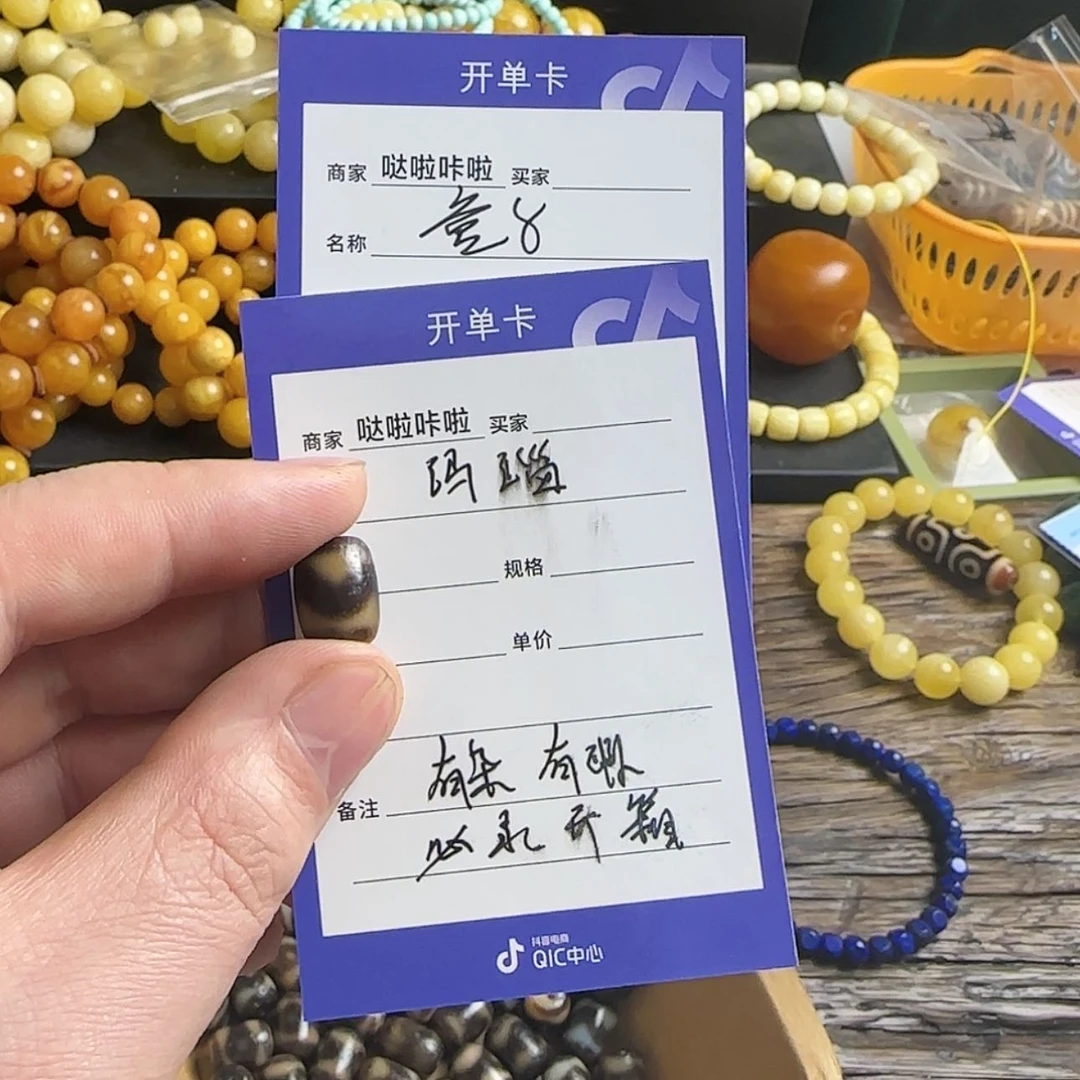 开单卡
商家 哒啦咔啦 买家
名称
开单卡
商家 哒啦咔啦 买家
玛瑙
规格
单价
有朵 有瑕
备注
抖音电商
QIC中心